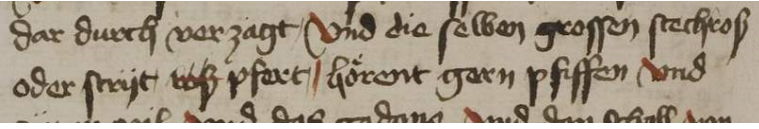 dar durch verzagt / Und die selben grossen stechross
oder strijt ross pfert / hörent gern pfiffen und
und das